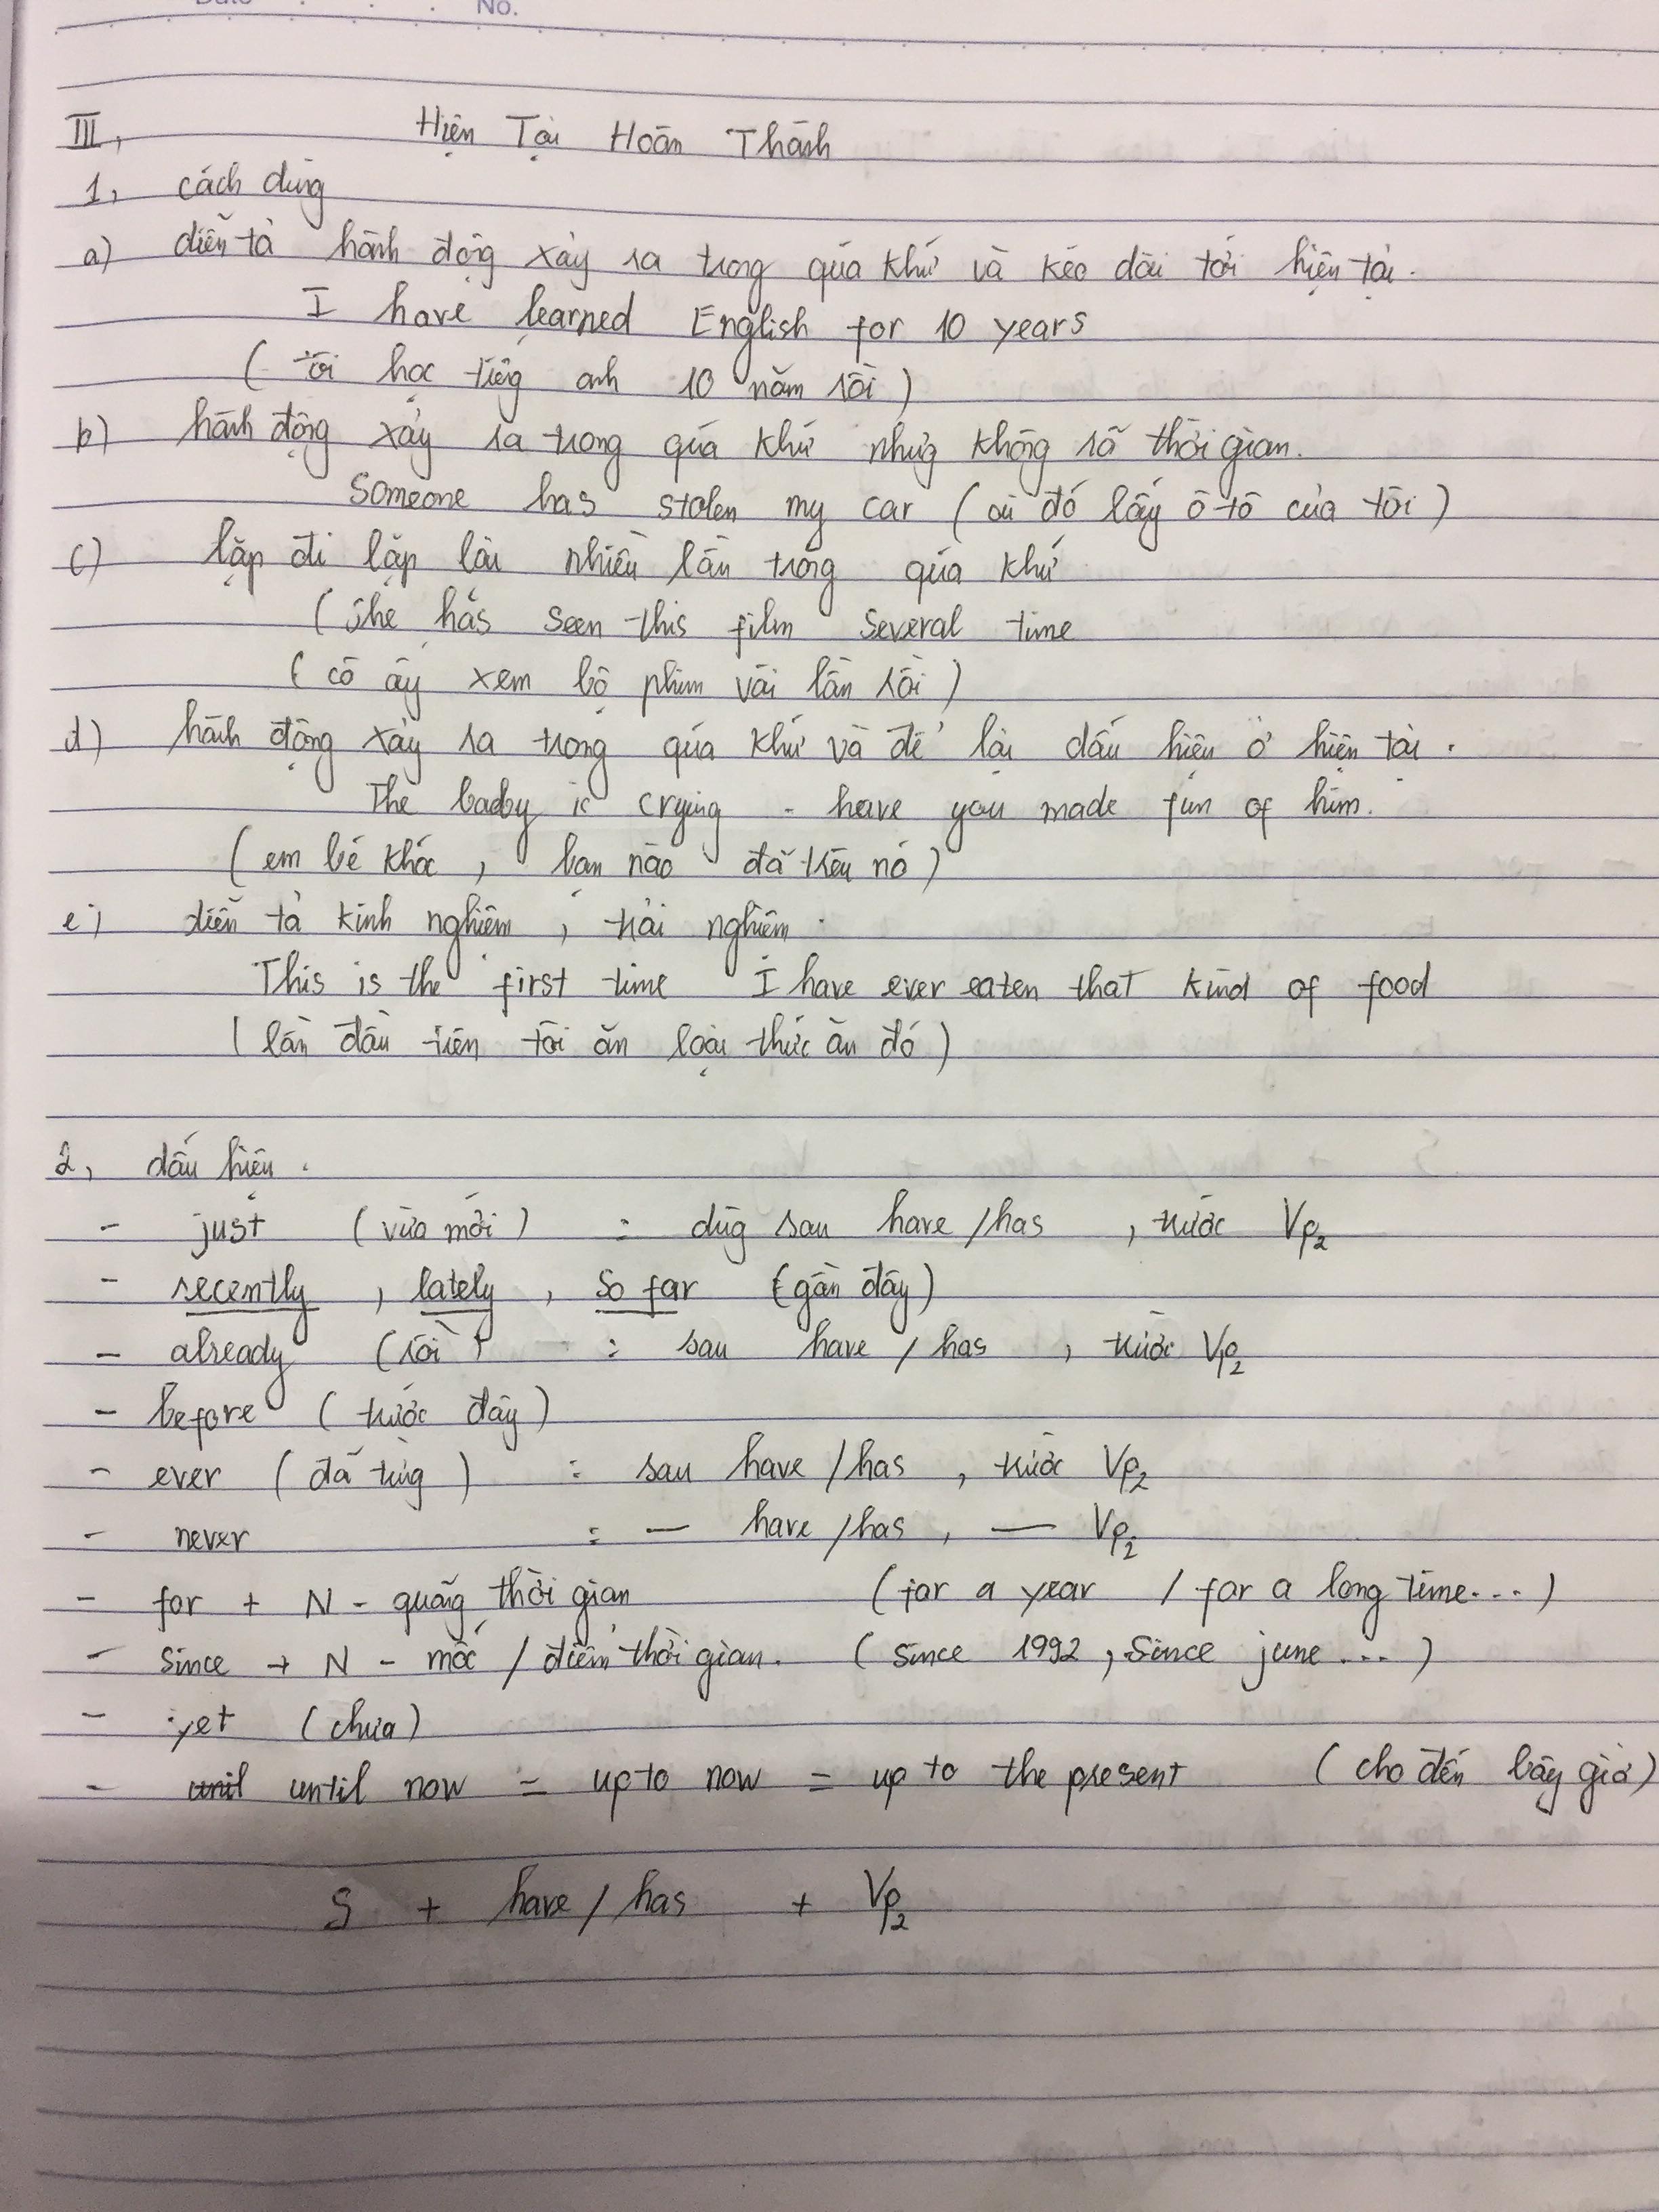 No.
III, Hiện Tại Hoàn Thành
1, cách dùng
a) diễn tả hành động xảy ra trong quá khứ và kéo dài tới hiện tại.
I have learned English for 10 years
( tôi học tiếng anh 10 năm rồi )
b) hành động xảy ra trong quá khứ nhưng không rõ thời gian.
Someone has stolen my car ( ai đó lấy ô tô của tôi )
c) lặp đi lặp lại nhiều lần trong quá khứ
( She has seen this film several time
( cô ấy xem bộ phim vài lần rồi )
d) hành động xảy ra trong quá khứ và để lại dấu hiệu ở hiện tại.
The baby is crying - have you made fun of him.
( em bé khóc , bạn nào đã trêu nó )
e) diễn tả kinh nghiệm , trải nghiệm.
This is the first time I have ever eaten that kind of food
( lần đầu tiên tôi ăn loại thức ăn đó )
2, dấu hiệu.
- just ( vừa mới ) : đứng sau have/has , trước Vp2
- recently , lately , so far ( gần đây )
- already ( rồi ) : sau have / has , trước Vp2
- before ( trước đây )
- ever ( đã từng ) : sau have / has , trước Vp2
- never : — have /has , — Vp2
- for + N - quãng thời gian (for a year / for a long time....)
- since + N - mốc / điểm thời gian. ( since 1992 , since june .... )
- yet ( chưa )
- until now = up to now = up to the present ( cho đến bây giờ )
S + have / has + Vp2